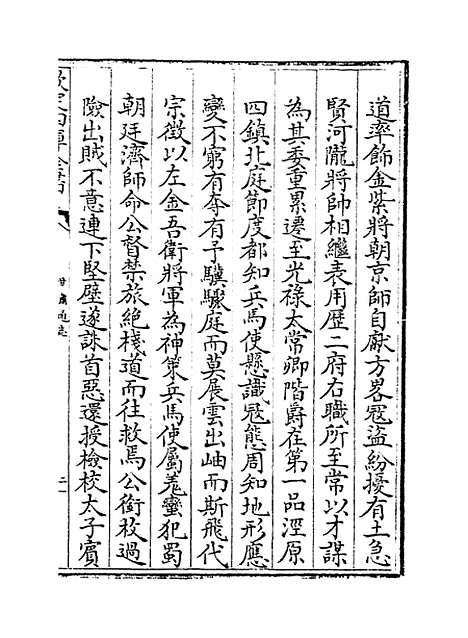 道率飾金紫將朝京師自獻方畧冦盗紛擾有土急
賢河隴將帥相繼表用歴二府右職所至常以才謀
為其委重累遷至光禄太常卿階爵在第一品涇原
四鎮北庭節度都知兵馬使懸識冦態周知地形應
變不窮有奪有予驥驟庭而莫展雲出岫而斯飛代
宗徴以左金吾衛將軍為神策兵馬使屬羗蠻犯蜀
朝廷濟師命公督禁旅絶棧道而往救焉公銜枚過
險出賊不意連下堅壁遂誅首惡還授檢校太子賓
欽定四庫全書
甘肅通志